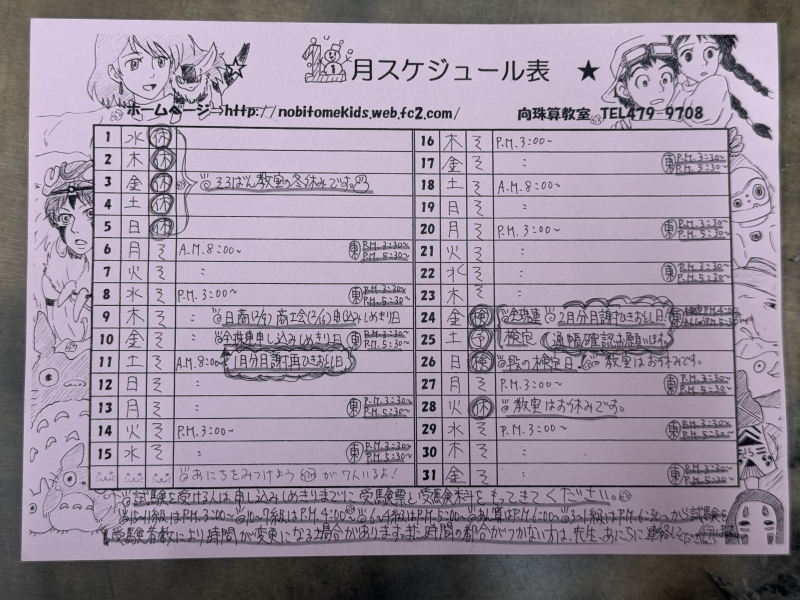 1月スケジュール表 ★
ホームページ→http://nobitomekids.web.fc2.com/ 向珠算教室 TEL479 9708
1 水 休
2 木 休
3 金 休 そろばん教室の冬休みです。
4 土 休
5 日 休
6 月 そ A.M.8:00~ 東 P.M.3:30~ P.M.5:30~
7 火 そ :
8 水 そ P.M.3:00~ 東 P.M.3:30~ P.M.5:30~
9 木 そ : 日商(2/9) 商工会(2/16)申込みしめきり日
10 金 そ : 全珠連申し込みしめきり日 東 P.M.3:30~ P.M.5:30~
11 土 そ A.M.8:00~ 1月分月謝再ひきおとし日
12 日 そ :
13 月 そ : 東 P.M.3:30~ P.M.5:30~
14 火 そ P.M.3:00~
15 水 そ : 東 P.M.3:30~ P.M.5:30~
あにちをみつけよう が7人いるよ!
16 木 そ P.M.3:00~
17 金 そ : 東 P.M.3:30~ P.M.5:30~
18 土 そ A.M.8:00~
19 日 そ :
20 月 そ P.M.3:00~ 東 P.M.3:30~ P.M.5:30~
21 火 そ :
22 水 そ : 東 P.M.3:30~ P.M.5:30~
23 木 そ :
24 金 検 全珠連 2月分月謝ひきおとし日 東
25 土 予 検定 通帳確認お願います。
26 日 検 段の検定日 教室はお休みです。
27 月 そ P.M.3:00~ 東 P.M.3:30~ P.M.5:30~
28 火 休 教室はお休みです。
29 水 そ P.M.3:00~ 東 P.M.3:30~ P.M.5:30~
30 木 そ :
31 金 そ : 東 P.M.3:30~ P.M.5:30~
試験を受ける人は申し込みしめきりまでに受験票と受験料をもってきてください。
15~11級はP.M.3:00~ 10~7級はP.M.4:00~ 6~4級はP.M.5:00~ あん算はP.M.6:00~ 3~1級はP.M.6:30~から試験
受験者数により時間が変更になる場合があります。また時間の都合がつかない方は、先生、あにちに連絡してください。